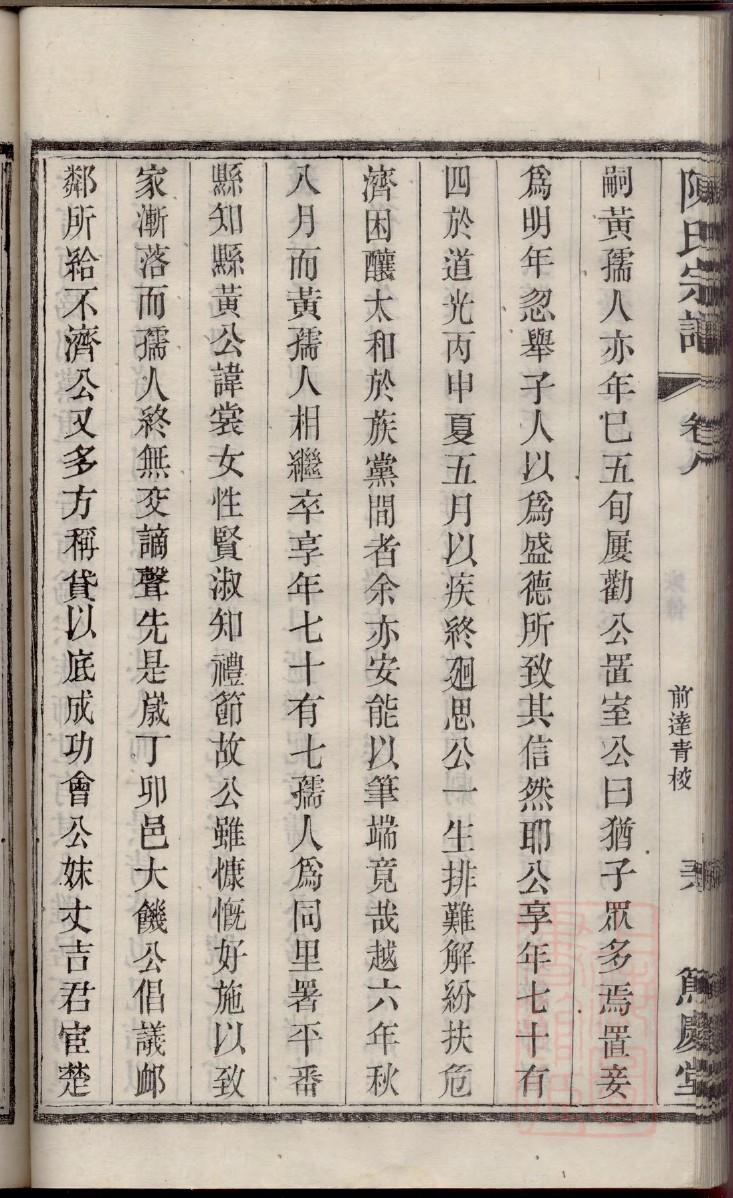 陳氏宗譜
卷八
前達青棱
堂
嗣黃孺人亦年巳五旬屢勸公置室公曰猶子眾多焉置妾
爲明年忽舉子人以爲盛德所致其信然耶公享年七十有
四於道光丙申夏五月以疾終廻思公一生排難解紛扶危
濟困釀太和於族黨間者余亦安能以筆端竟哉越六年秋
八月而黃孺人相繼卒享年七十有七孺人爲同里署平番
縣知縣黃公諱裳女性賢淑知禮節故公雖慷慨好施以致
家漸落而孺人終無交謫聲先是歲丁卯邑大饑公倡議卹
鄰所給不濟公又多方稱貸以底成功會公妹丈吉君宦楚